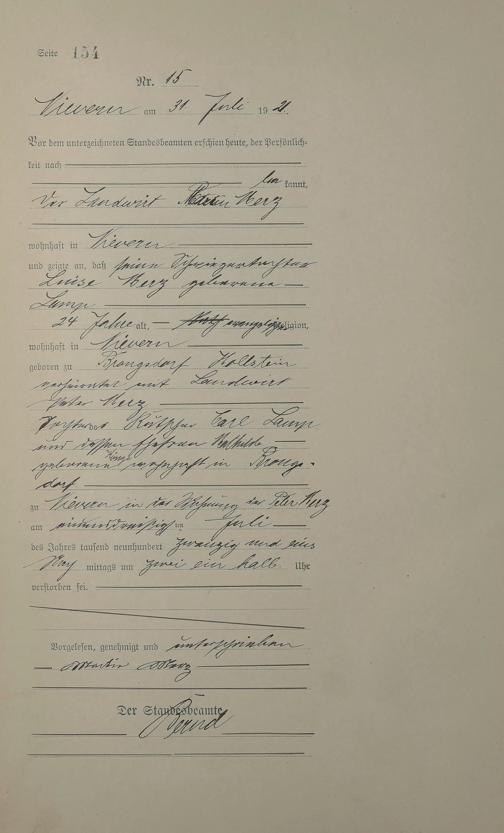 Seite 154
Nr. 15
Nievern am 31 Juli 1921.
Vor dem unterzeichneten Standesbeamten erschien heute, der Persönlich-
keit nach
be kannt,
Der Landwirt Martin Merz
wohnhaft in Nievern
und zeigte an, daß seine Schwiegertochter
Luise Merz geborene
Lamp
24 Jahre alt, evangelische Religion,
wohnhaft in Nievern
geboren zu Holstein
verheiratet mit Landwirt
Peter Merz
Tochter des Kutscher Carl Lamp
und dessen Ehefrau
geborene wohnhaft in
dorf
zu Nievern in der Wohnung des Peter Merz
am einunddreißigsten Juli
des Jahres tausend neunhundert zwanzig und eins
Nach mittags um zwei ein halb Uhr
verstorben sei.
Vorgelesen, genehmigt und unterschrieben
Martin Merz
Der Standesbeamte